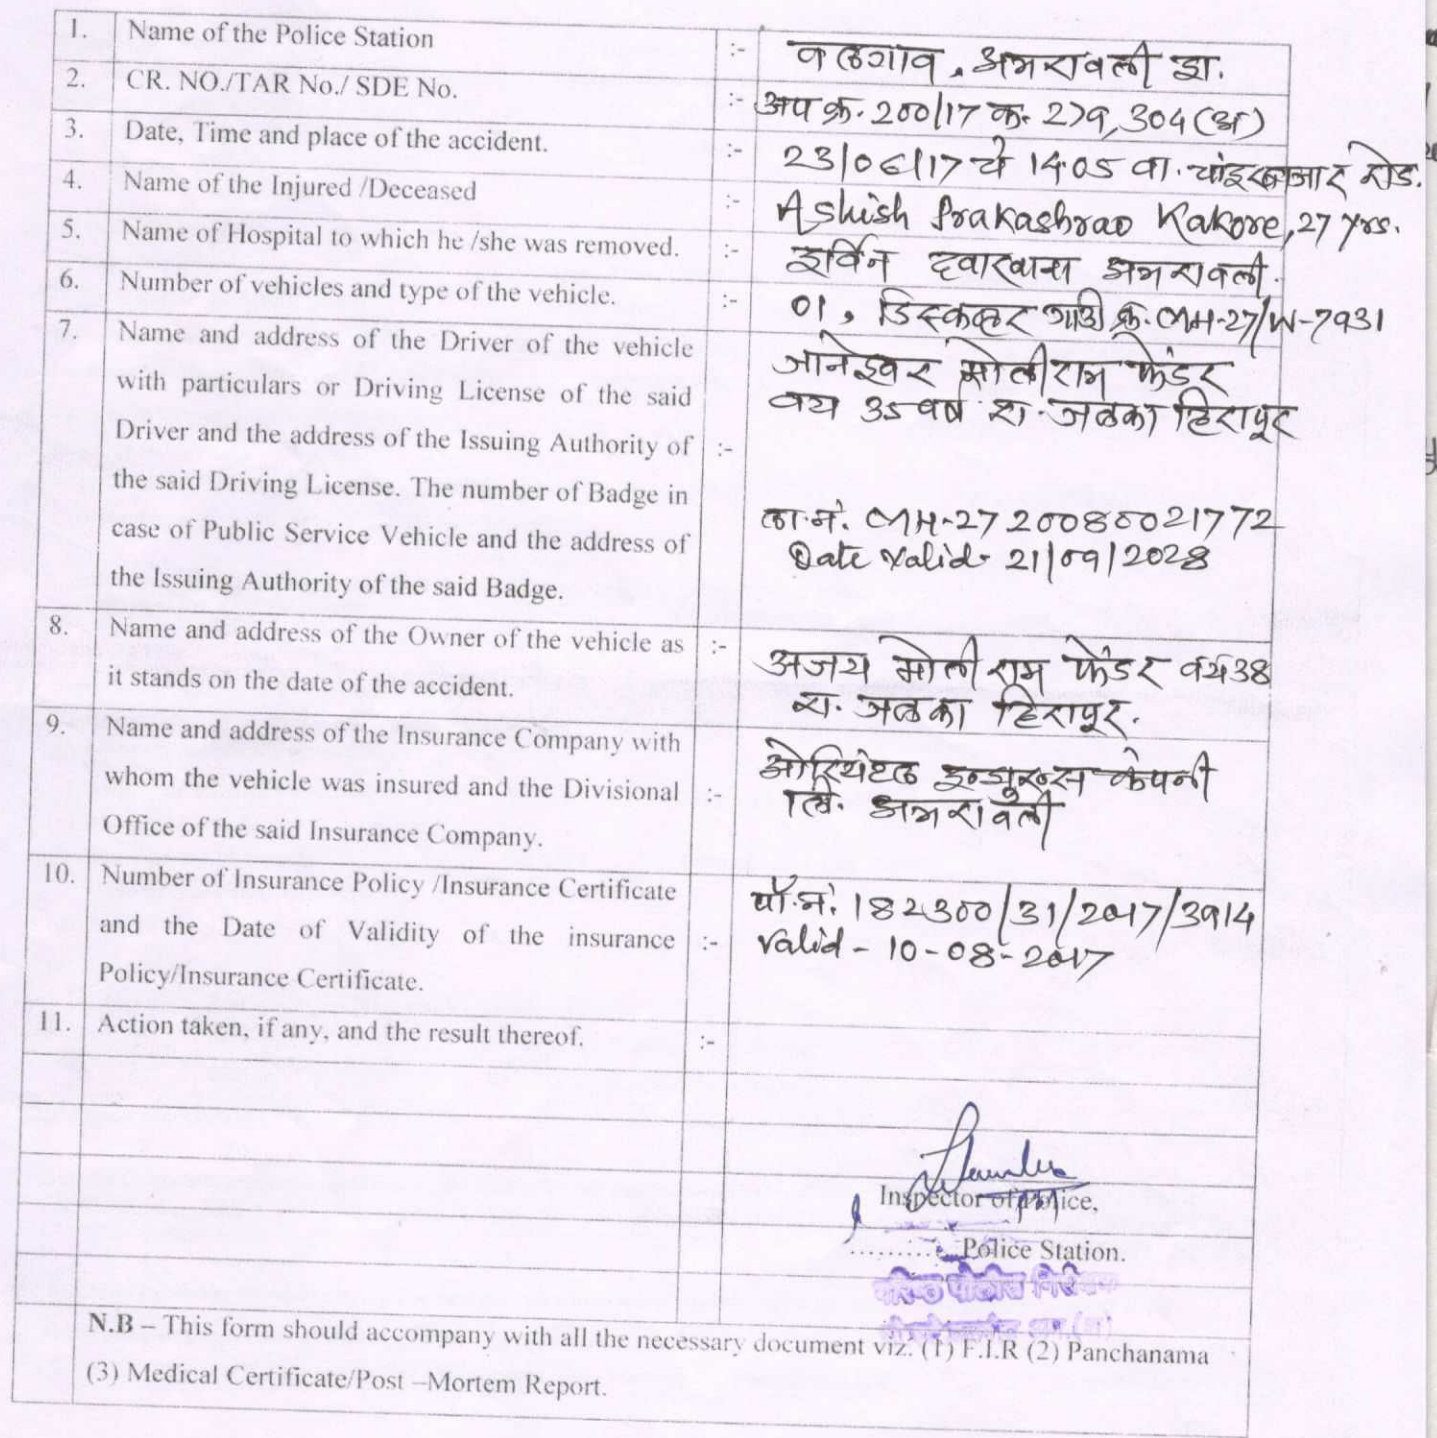 1. Name of the Police Station :- वलगाव, अमरावती ग्रा.
2. CR. NO./TAR No./ SDE No. :- अप क्र. 200/17 क. 279, 304 (अ)
3. Date, Time and place of the accident. :- 23/06/17 चे 14.05 वा. चांदूरबाजार रोड.
4. Name of the Injured /Deceased :- Ashish Prakashrao Kakore, 27 yrs.
5. Name of Hospital to which he /she was removed. :- इर्विन दवाखाना अमरावती.
6. Number of vehicles and type of the vehicle. :- 01, डिस्कव्हर गाडी क्र. MH-27/W-7931
7. Name and address of the Driver of the vehicle
with particulars or Driving License of the said
Driver and the address of the Issuing Authority of :-
the said Driving License. The number of Badge in
case of Public Service Vehicle and the address of
the Issuing Authority of the said Badge.
ज्ञानेश्वर मोतीराम फेंडर
वय 35 वर्ष रा. जळका हिरापूर
ला.नं. MH-27 20080021772
Date Valid- 21/09/2028
8. Name and address of the Owner of the vehicle as :-
it stands on the date of the accident.
अजय मोतीराम फेंडर वय 38
रा. जळका हिरापूर.
9. Name and address of the Insurance Company with
whom the vehicle was insured and the Divisional :-
Office of the said Insurance Company.
ओरियेंटल इन्शुरन्स कंपनी
लि. अमरावती
10. Number of Insurance Policy /Insurance Certificate
and the Date of Validity of the insurance :-
Policy/Insurance Certificate.
पॉ.नं. 182300/31/2017/3914
Valid - 10-08-2017
11. Action taken, if any, and the result thereof. :-
Inspector of Police,
......... Police Station.
वरिष्ठ पोलीस निरीक्षक
N.B – This form should accompany with all the necessary document viz. (1) F.I.R (2) Panchanama
(3) Medical Certificate/Post –Mortem Report.